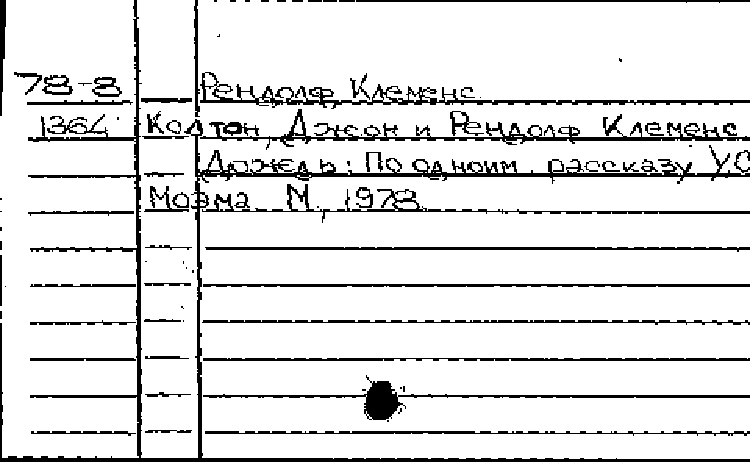 78-8 Рендолф, Клеменс
1364 Колтон, Джон и Рендолф Клеменс
Дождь: По одноим. рассказу У.С.
Моэма. М., 1978.